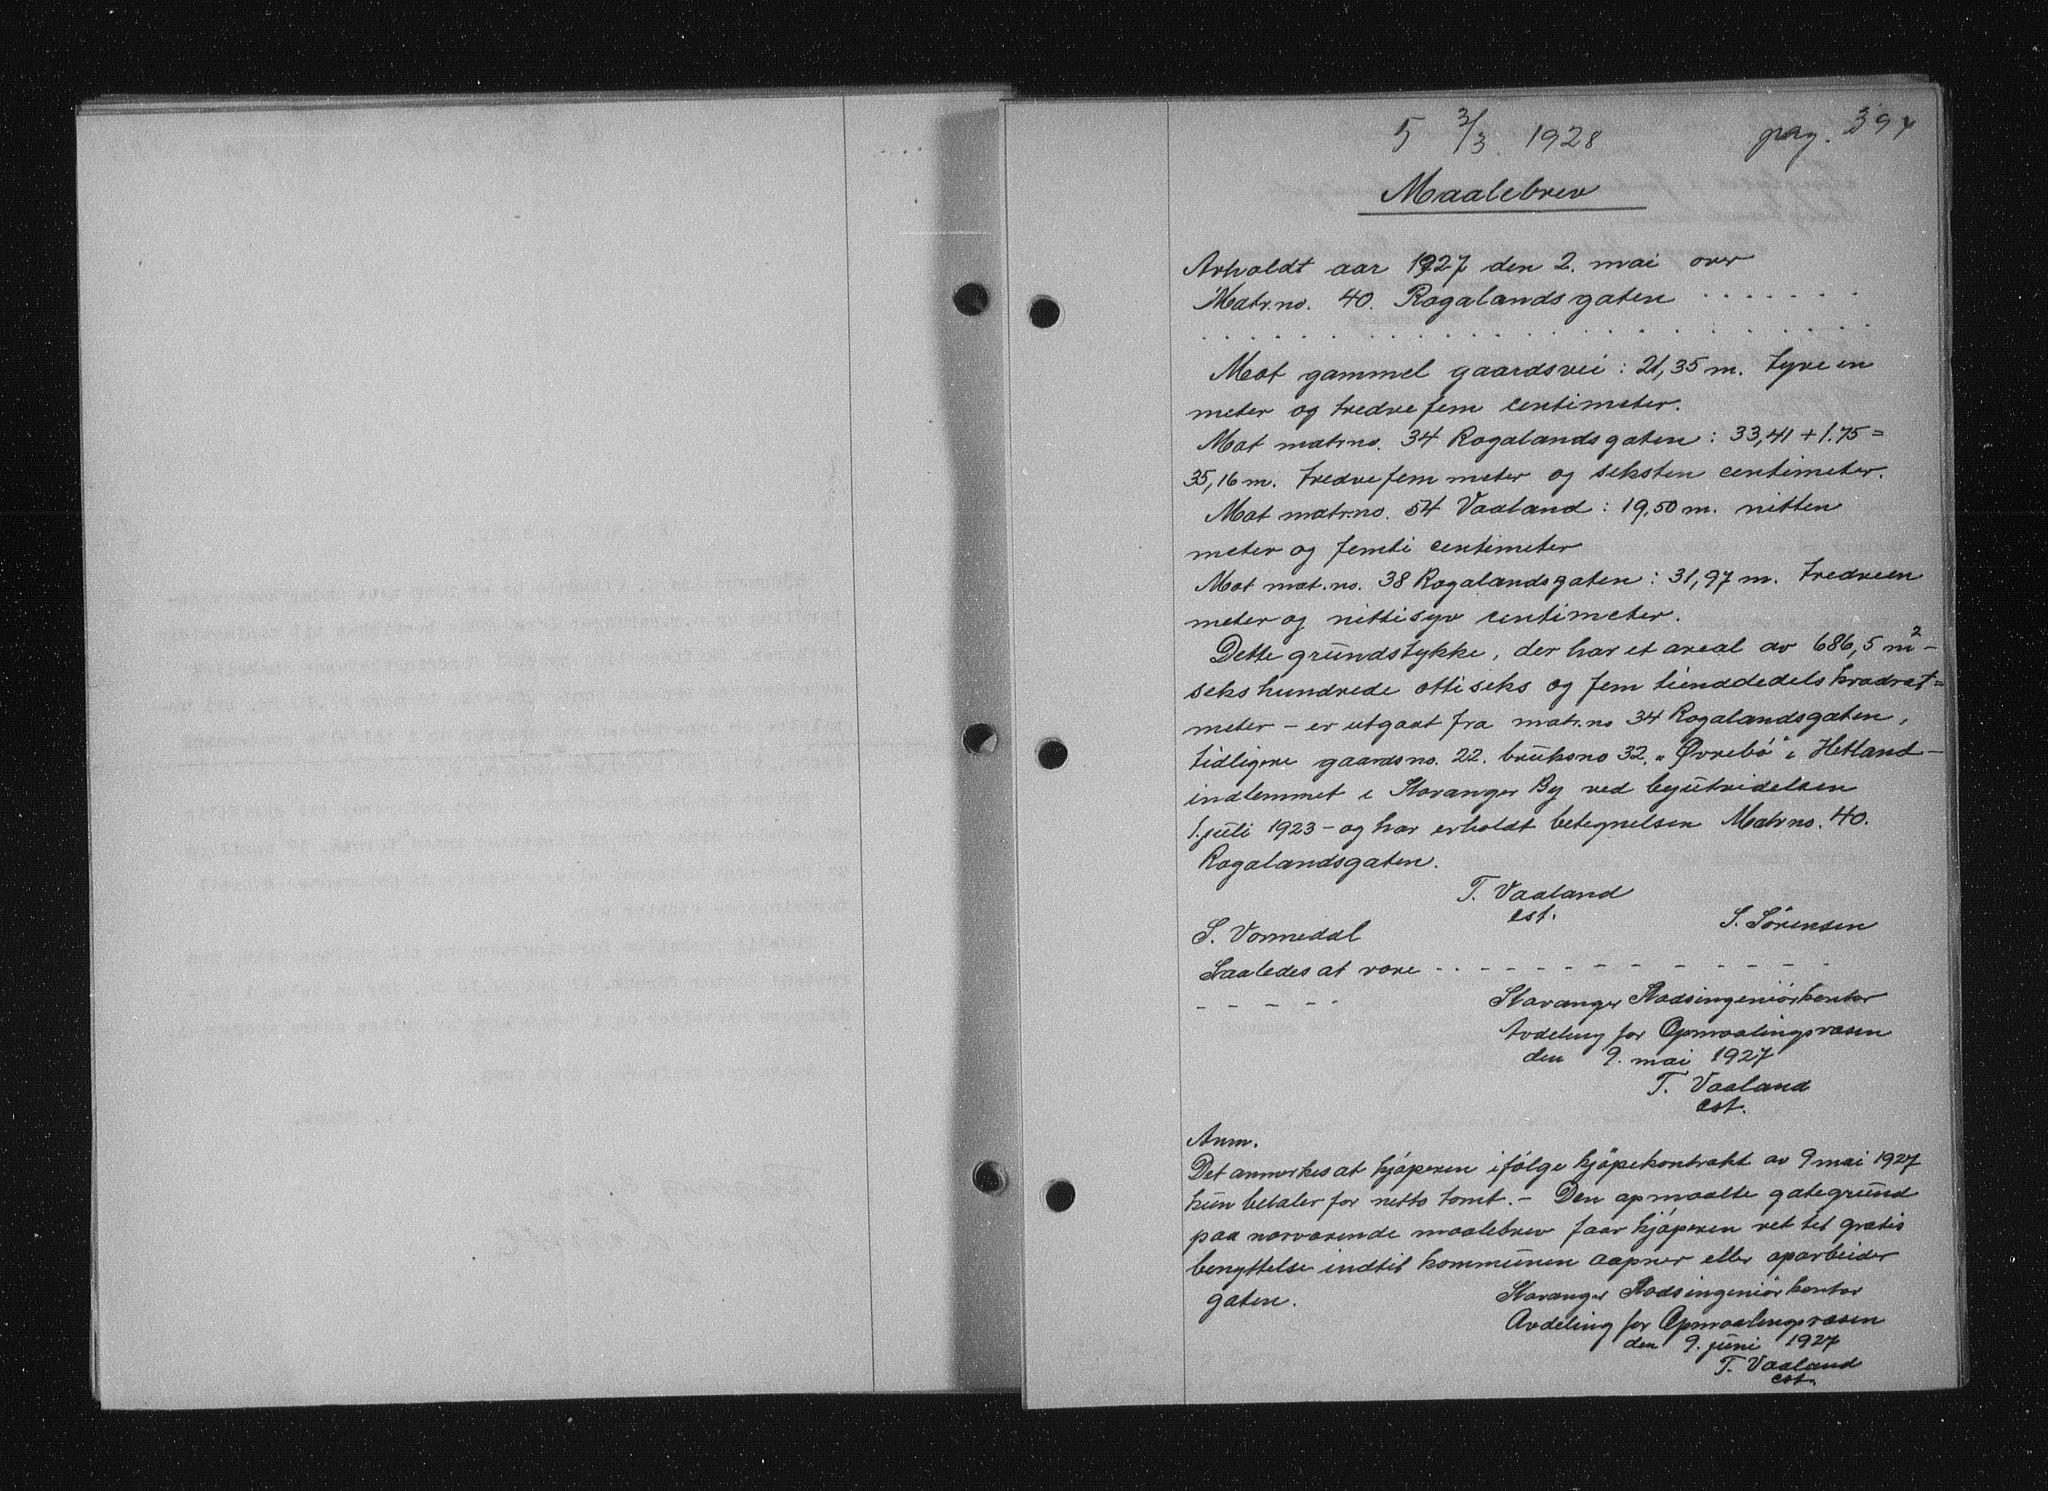 5 3/3. 1928 pag. 397
Maalebrev
Avholdt aar 1927 den 2. mai over
Matr.no. 40. Rogalandsgaten . . . . . . .
. . . . . . . . . . . . . . . . . . . .
Mot gammel gaardsvei : 21,35 m. tyve en
meter og tredvefem centimeter.
Mot matr.no. 34 Rogalandsgaten : 33,41 + 1.75 =
35,16 m. tredvefem meter og seksten centimeter.
Mot matr.no. 54 Vaaland : 19,50 m. nitten
meter og femti centimeter
Mot mat.no. 38 Rogalandsgaten : 31,97 m. tredveen
meter og nittisyv centimeter.
Dette grundstykke, der har et areal av 686,5 m² –
seks hundrede otti seks og fem tienddedels kvadrat=
meter – er utgaat fra matr.no 34 Rogalandsgaten,
tidligere gaardsno. 22. bruksno 32. „Øvrebø" i Hetland –
indlemmet i Stavanger By ved byutvidelsen
1. juli 1923 – og har erholdt betegnelsen Matr no. 40.
Rogalandsgaten.
T. Vaaland
est.
S. Vormedal S. Sørensen
Saaledes at være - - - - - - - - - - - -
- - - - -
Stavanger Stadsingeniørkontor
Avdeling for Opmaalingsvæsen
den 9. mai 1927
T. Vaaland
est.
Anm.
Det anmerkes at kjøperen ifølge kjøpekontrakt av 9 mai 1927
kun betaler for netto tomt. – Den opmaalte gategrund
paa nærværende maalebrev faar kjøperen ret tet gratis
benyttelse indtil kommunen aapner eller oparbeider
gaten.
Stavanger Stadsingeniørkontor
Avdeling for Opmaalingsvæsen
den 9. juni 1927
T. Vaaland
est.